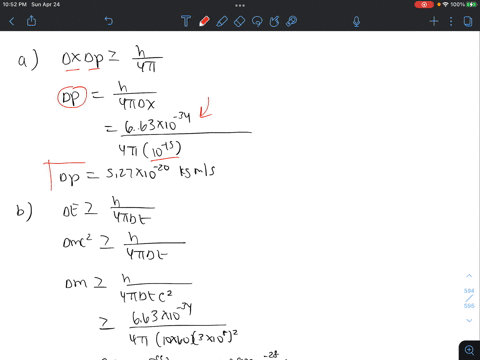 10:52 PM Sun Apr 24
100%
a) Δx Δp ≥ h/4π
Δp = h/4πΔx
= 6.63×10^-34/4π(10^-15)
Δp = 5.27×10^-20 kg m/s
b) ΔE ≥ h/4πΔt
Δmc² ≥ h/4πΔt
Δm ≥ h/4πΔtc²
≥ 6.63×10^-34/4π(10×60)(3×10^8)²
594
/
595